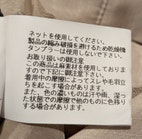 ネットを使用してください。
製品の編み破損を避けるため乾燥機
タンブラーは使用しないで下さい。
お取り扱いの御注意
この商品は麻素材を使用しておりま
すので下記に御注意下さい。
着用中の摩擦によってスレや毛羽立
ちを起こす場合があります。
また、色の濃いものは汗や雨、湿っ
た状態での摩擦で他のものに色移り
する場合があります。